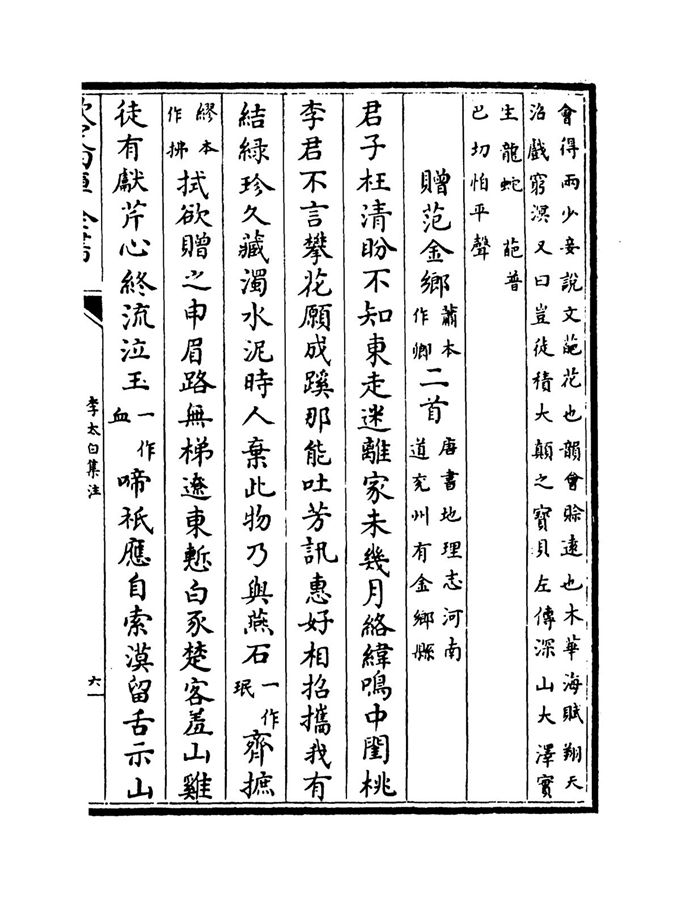 會得兩少妾說文葩花也韻會賒遠也木華海賦翔天
沼戲窮溟又曰豈徒積大顛之寶貝左傳深山大澤實
生龍蛇 葩普
巴切怕平聲
贈范金鄉蕭本作卿二首唐書地理志河南道兖州有金鄉縣
君子枉清盼不知東走迷離家未幾月絡緯鳴中閨桃
李君不言攀花願成蹊那能吐芳訊惠好相招攜我有
結綠珍久藏濁水泥時人棄此物乃與燕石一作珉齊摭
繆本作拂拭欲贈之申眉路無梯遼東慙白豕楚客羞山雞
徒有獻芹心終流泣玉一作血啼祇應自索漠留舌示山
李太白集注